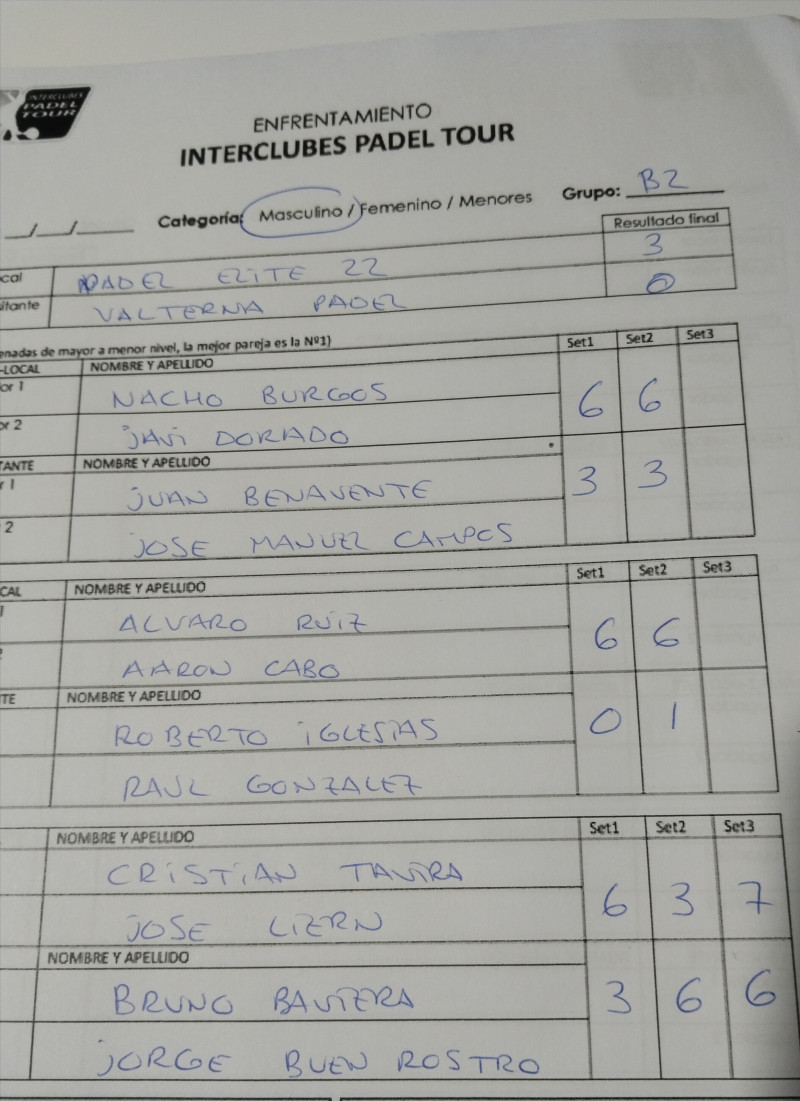 INTERCLUBES
PADEL
TOUR
ENFRENTAMIENTO
INTERCLUBES PADEL TOUR
__/__/____ Categoría: Masculino / Femenino / Menores Grupo: B2
Resultado final
cal PADEL ELITE 22 3
itante VALTERNA PADEL 0
enadas de mayor a menor nivel, la mejor pareja es la Nº1) Set1 Set2 Set3
-LOCAL NOMBRE Y APELLIDO
or 1 NACHO BURGOS 6 6
or 2 JAVI DORADO
TANTE NOMBRE Y APELLIDO
r 1 JUAN BENAVENTE 3 3
2 JOSE MANUEL CAMPOS
CAL NOMBRE Y APELLIDO Set1 Set2 Set3
1 ALVARO RUIZ 6 6
AARON CABO
TE NOMBRE Y APELLIDO
ROBERTO IGLESIAS 0 1
RAUL GONZALEZ
NOMBRE Y APELLIDO Set1 Set2 Set3
CRISTIAN TAVIRA 6 3 7
JOSE LIERN
NOMBRE Y APELLIDO
BRUNO BAVIERA 3 6 6
JORGE BUEN ROSTRO